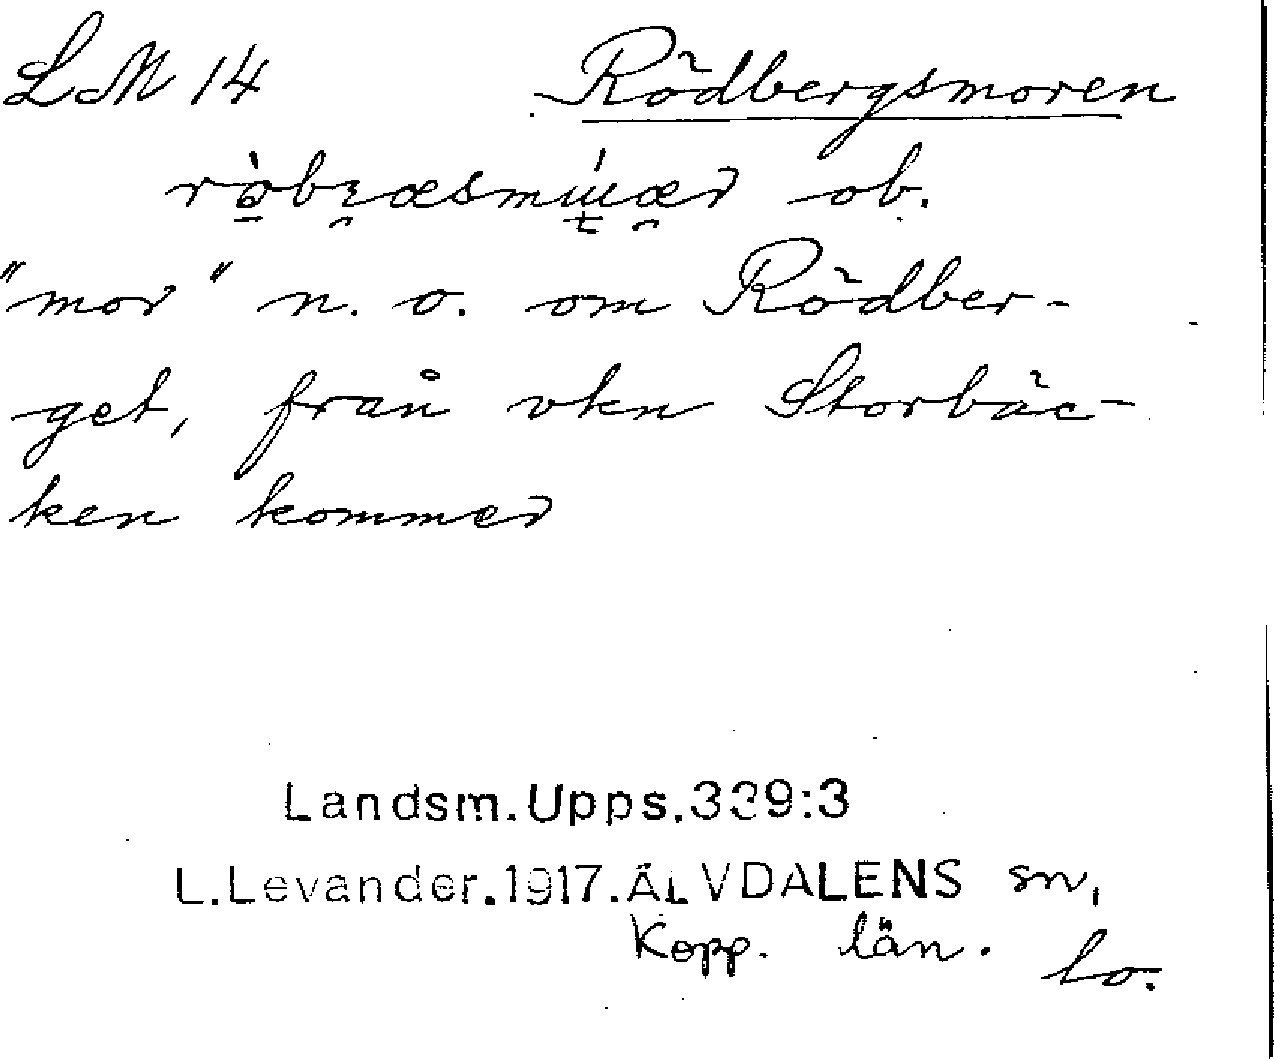 LM 14 Rödbergsmoren
ob.
"mor" n. o. om Rödber-
get, från vkn Storbäc-
ken kommer
Landsm.Upps.339:3
L.Levander.1917.ÄLVDALENS sn,
Kopp. län. lo.